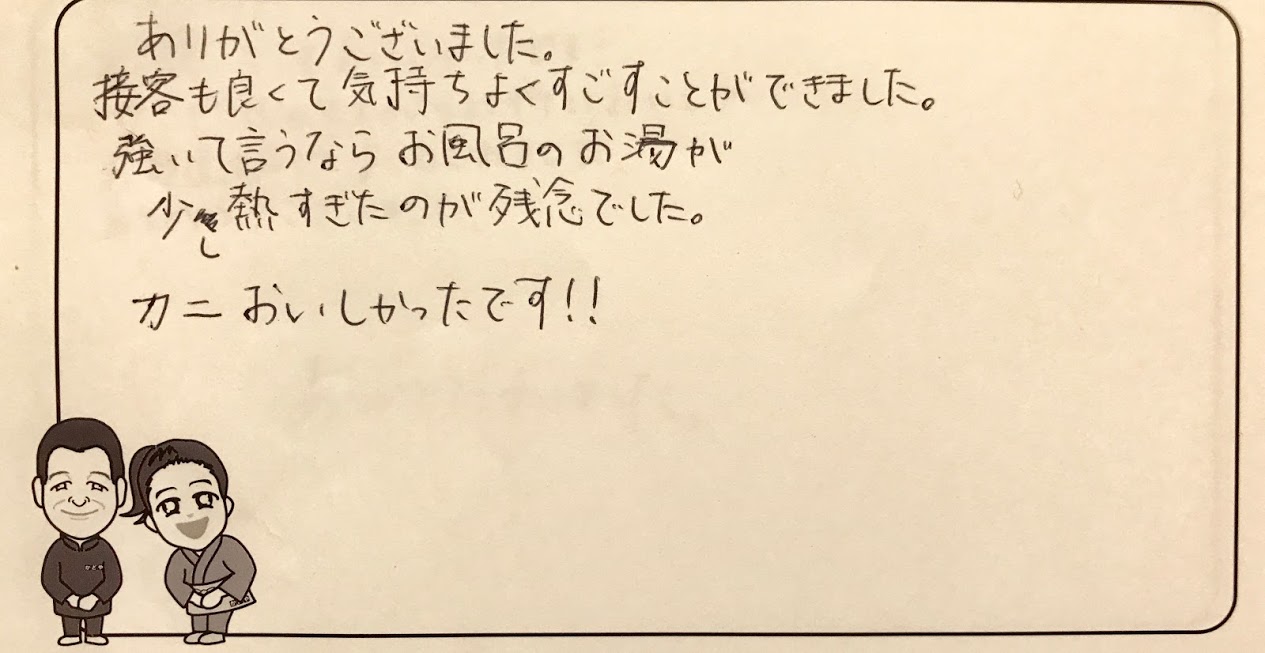 ありがとうございました。
接客も良くて気持ちよくすごすことができました。
強いて言うならお風呂のお湯が
少し熱すぎたのが残念でした。
カニおいしかったです!!